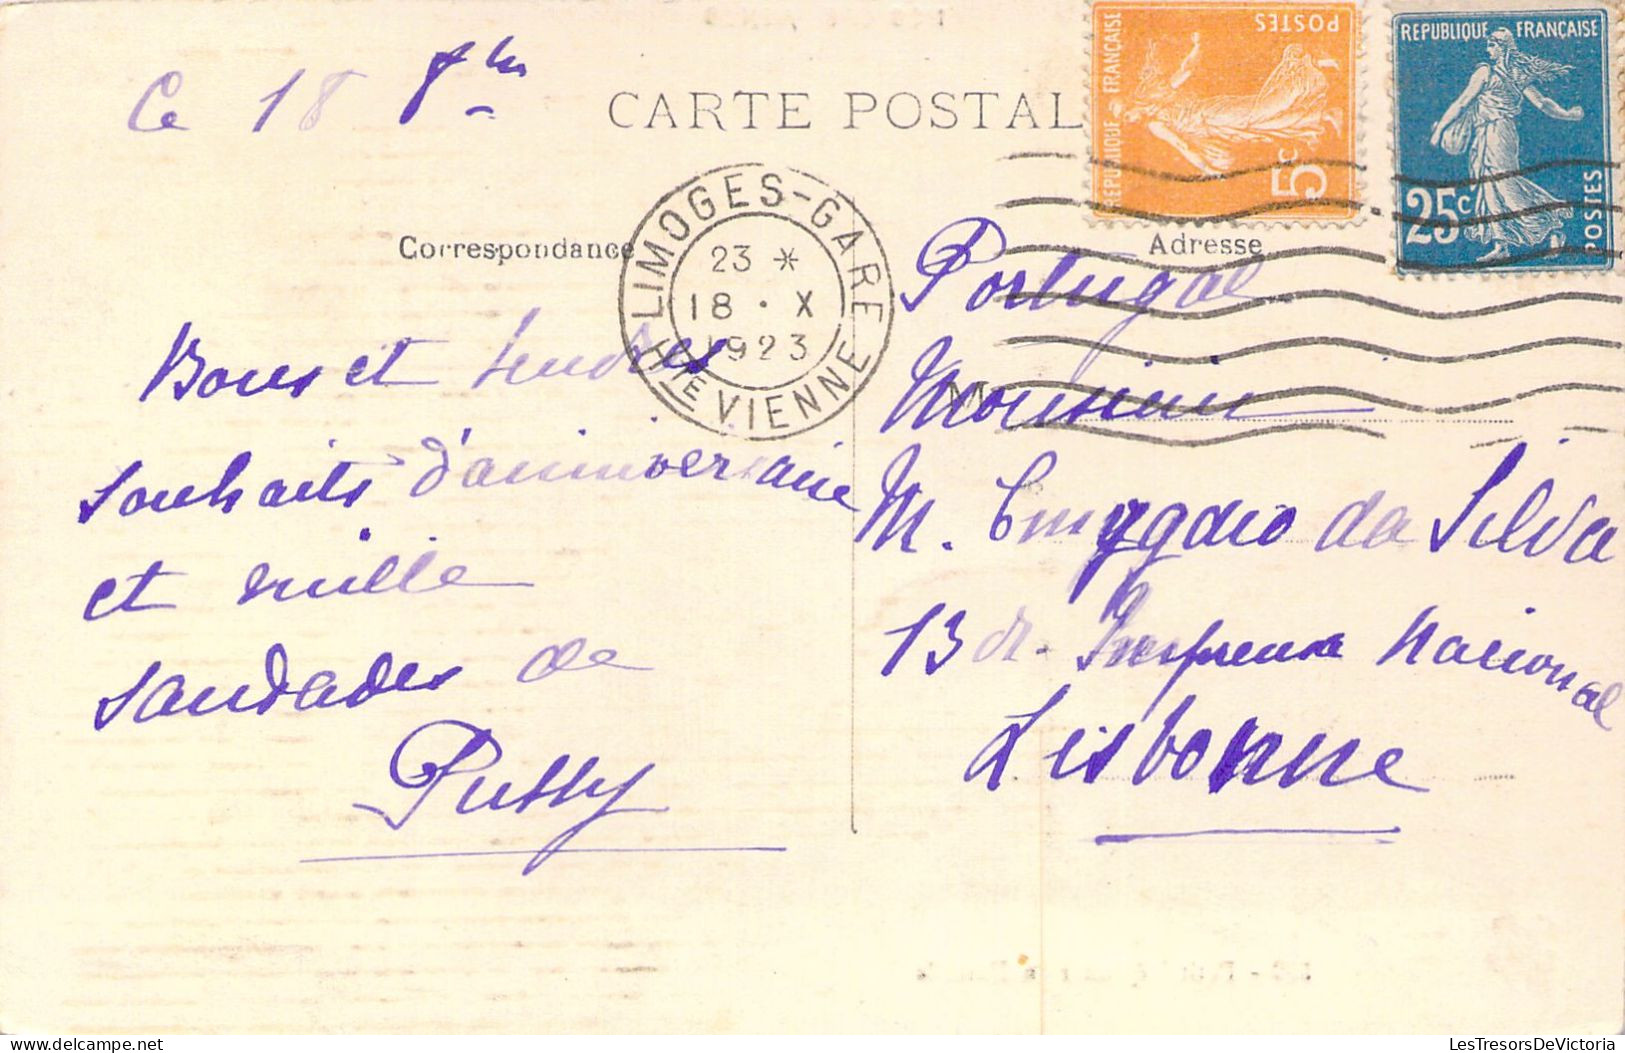 Ce 18
CARTE POSTAL
RÉPUBLIQUE FRANÇAISE
5c
POSTES
RÉPUBLIQUE FRANÇAISE
25c
POSTES
LIMOGES-GARE
23 *
18 · X
1923
HTE VIENNE
Correspondance
Adresse
Bons et tendres
souhaits d'anniversaire
et mille
saudades de
Pussy
Portugal
M
Monsieur
M. da Silva
13 Imprensa Nacional
Lisbonne
LesTresorsDeVictoria